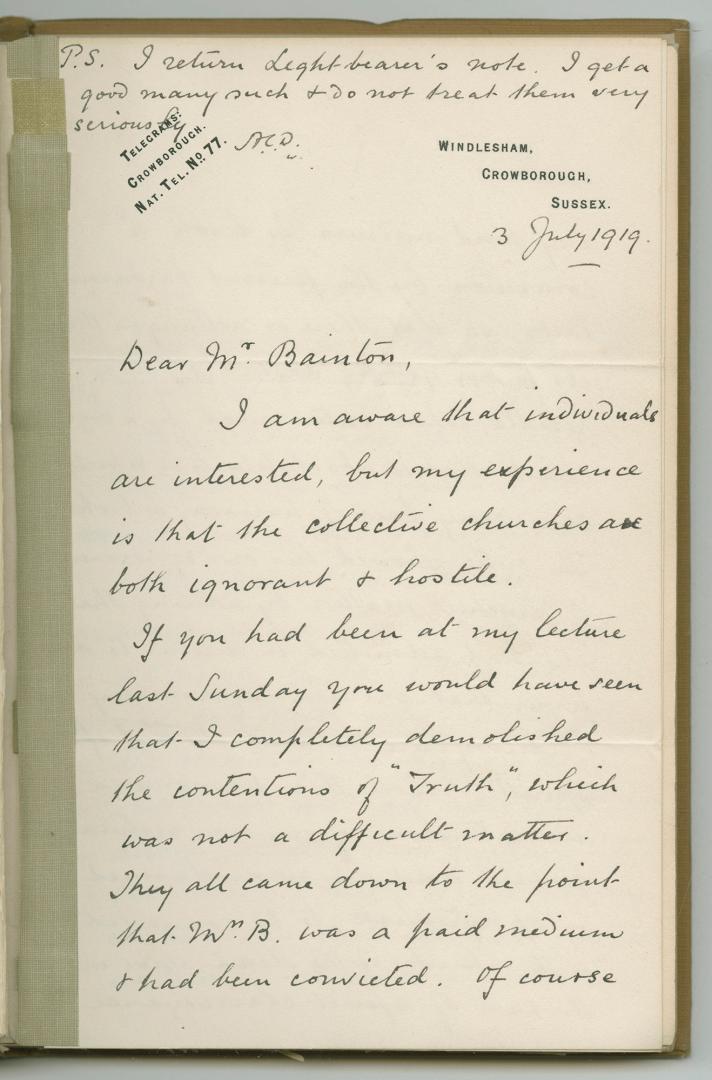 P.S. I return Lightbearer's note. I get a
good many such & do not treat them very
seriously
A.C.D.
TELEGRAMS:
CROWBOROUGH.
NAT. TEL. No. 77.
WINDLESHAM,
CROWBOROUGH,
SUSSEX.
3 July 1919.
Dear Mr. Bainton,
I am aware that individuals
are interested, but my experience
is that the collective churches are
both ignorant & hostile.
If you had been at my lecture
last Sunday you would have seen
that I completely demolished
the contentions of "Truth", which
was not a difficult matter.
They all came down to the point
that Mrs B. was a paid medium
& had been convicted. Of course